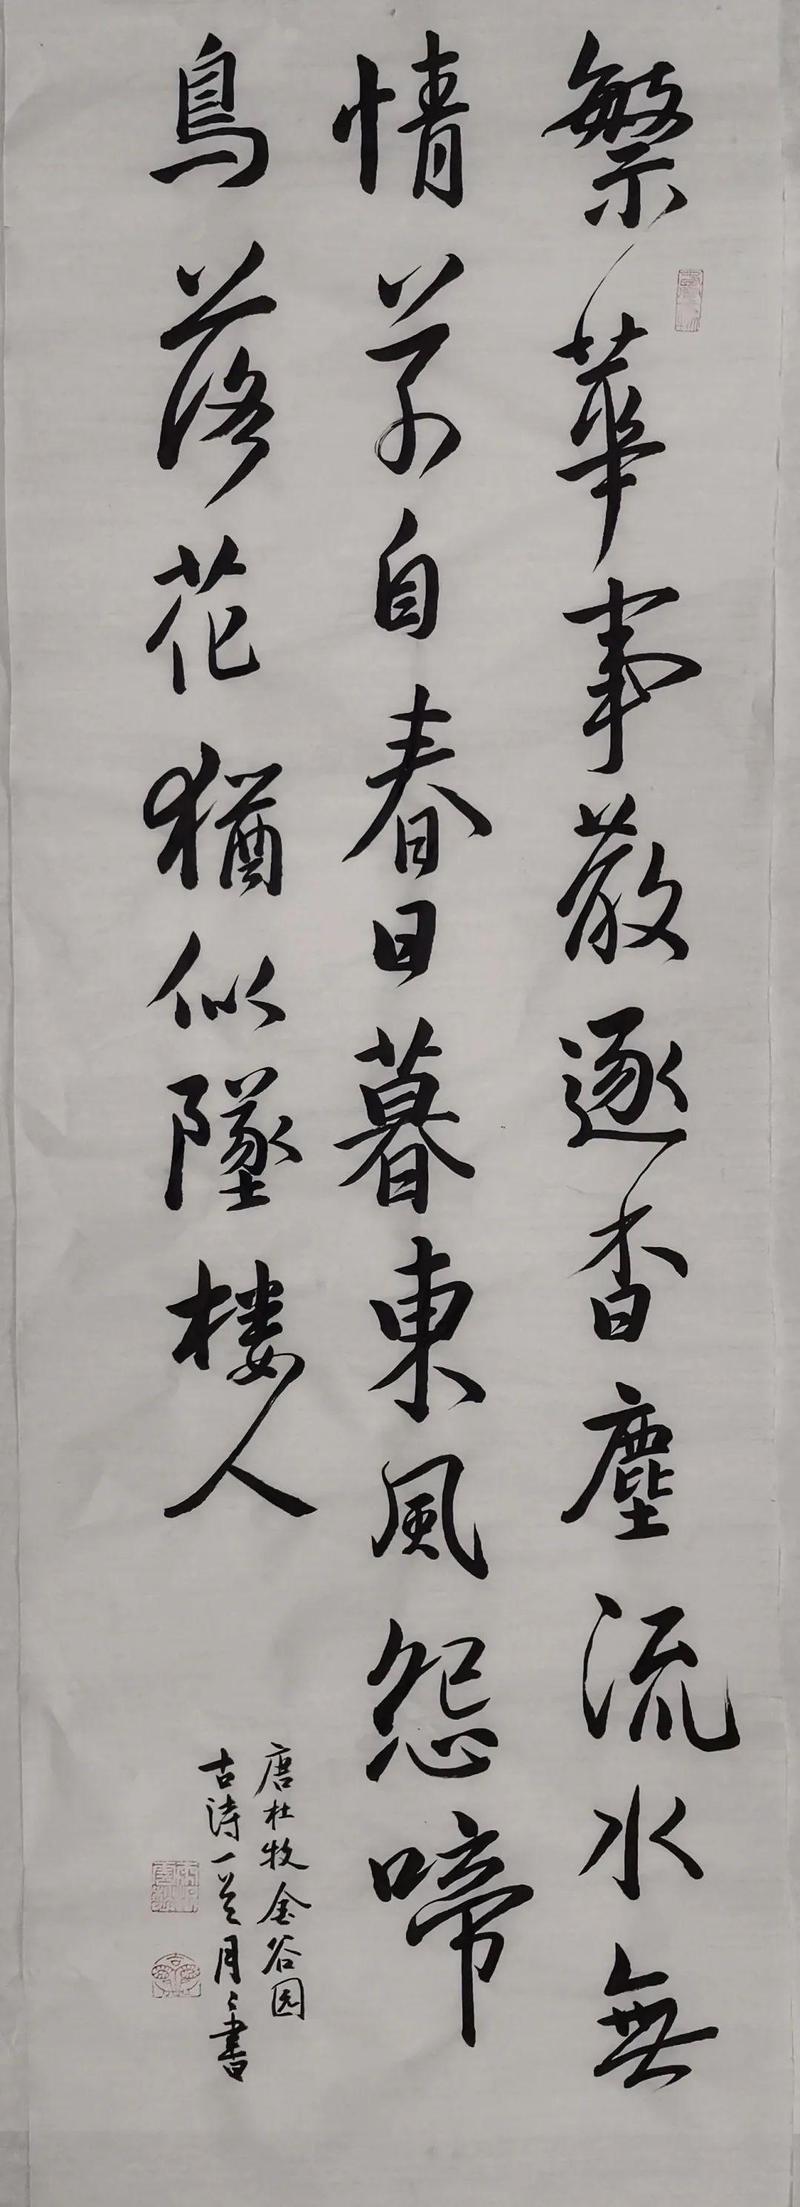 繁華事散逐香塵流水無
情草自春日暮東風怨啼
鳥落花猶似墜楼人
唐杜牧金谷园
古诗一首月月書